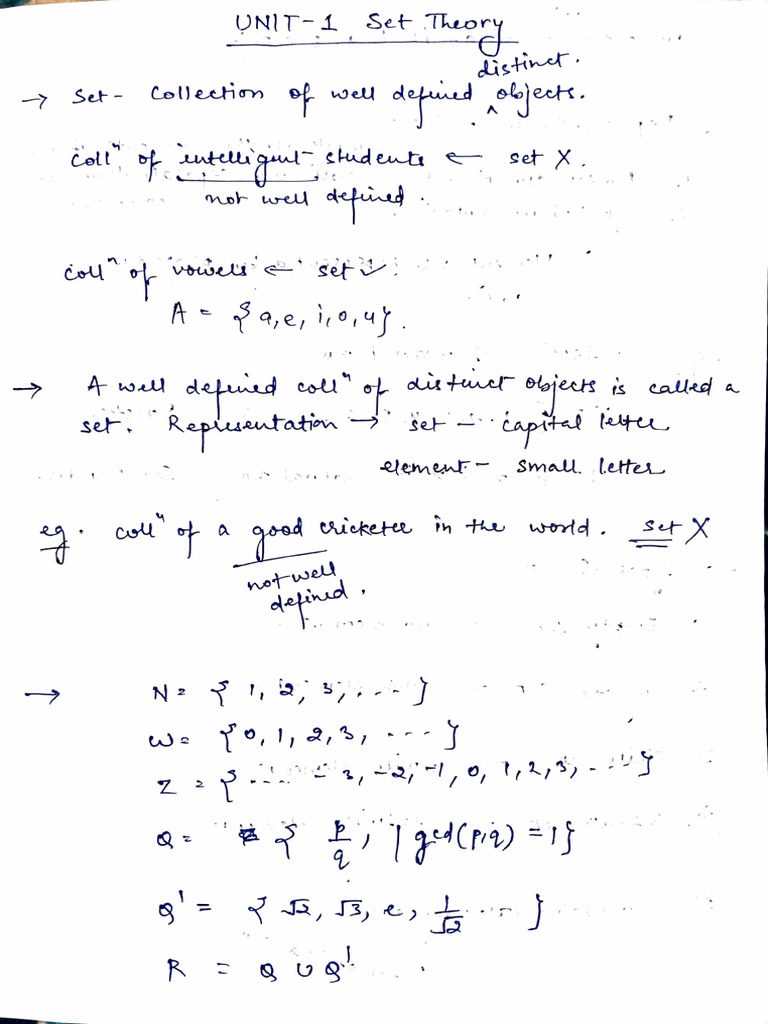 UNIT-1 Set Theory
distinct.
→ Set - Collection of well defined ^ objects.
Collⁿ of intelligent students ← set X.
not well defined.
Collⁿ of vowels ← set ✓.
A = {a, e, i, o, u}.
→ A well defined collⁿ of distinct objects is called a
set. Representation → set - capital letter
element - small letter
eg. collⁿ of a good cricketer in the world. set X
not well
defined.
→ N = { 1, 2, 3, ... }
W = {0, 1, 2, 3, .... }
Z = { .... -3, -2, -1, 0, 1, 2, 3, .... }
Q = { p/q, | gcd(p,q) = 1}
Q' = { √2, √3, e, 1/√2 ... }
R = Q ∪ Q'